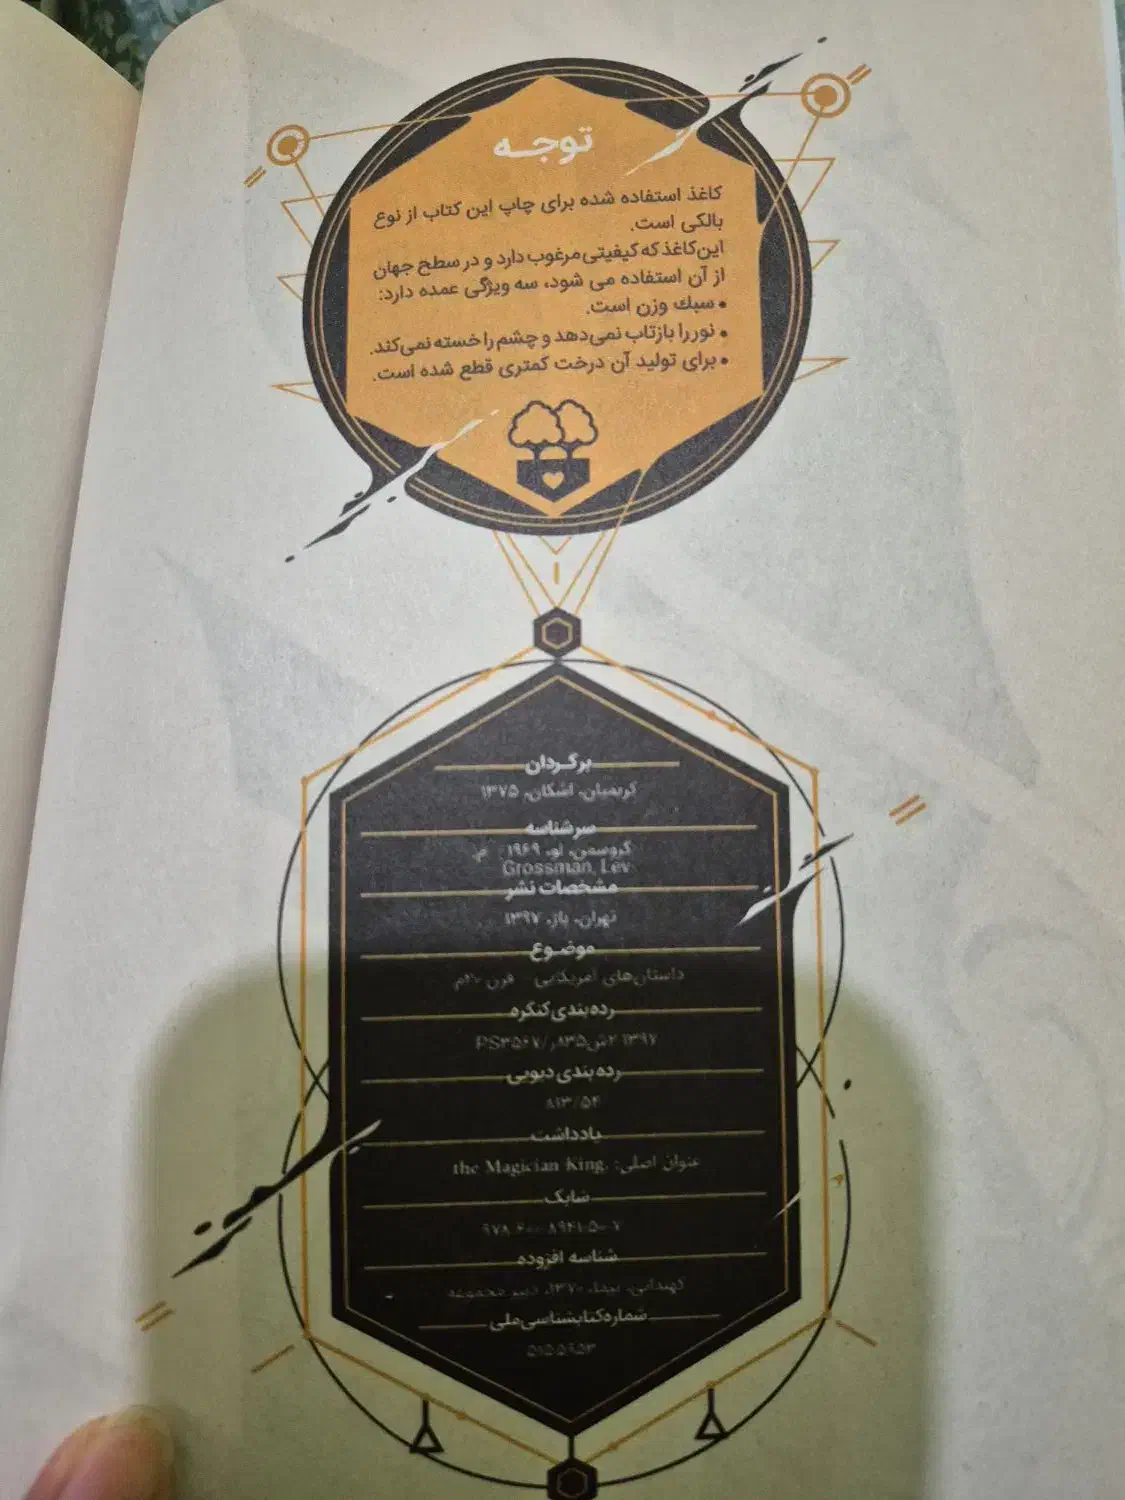 توجه
کاغذ استفاده شده برای چاپ این کتاب از نوع
بالکی است.
این کاغذ که کیفیتی مرغوب دارد و در سطح جهان
از آن استفاده می شود، سه ویژگی عمده دارد:
• سبك وزن است.
• نور را بازتاب نمی‌دهد و چشم را خسته نمی‌کند.
• برای تولید آن درخت کمتری قطع شده است.
برگردان
کریمیان، اشکان، ۱۳۷۵
سرشناسه
گروسمن، لو، ۱۹۶۹ م
Grossman, Lev
مشخصات نشر
تهران، باژ، ۱۳۹۷
موضوع
داستان‌های آمریکایی قرن ۲۰م
رده‌بندی کنگره
رده‌بندی دیویی
۸۱۳/۵۴
یادداشت
عنوان اصلی: the Magician King.
شابک
شناسه افزوده
۱۳۷۰، دبیر مجموعه
شماره کتابشناسی ملی